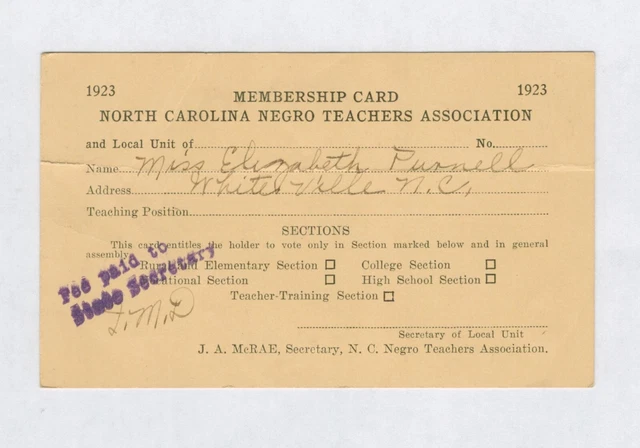 1923 1923
MEMBERSHIP CARD
NORTH CAROLINA NEGRO TEACHERS ASSOCIATION
and Local Unit of No.
Name Miss Elizabeth Purnell
Address Whiteville N.C.
Teaching Position
SECTIONS
This card entitles the holder to vote only in Section marked below and in general
assembly.
Rural and Elementary Section College Section
ational Section High School Section
Teacher-Training Section
Fee paid to
State Secretary
J.M.D
Secretary of Local Unit
J. A. McRAE, Secretary, N. C. Negro Teachers Association.